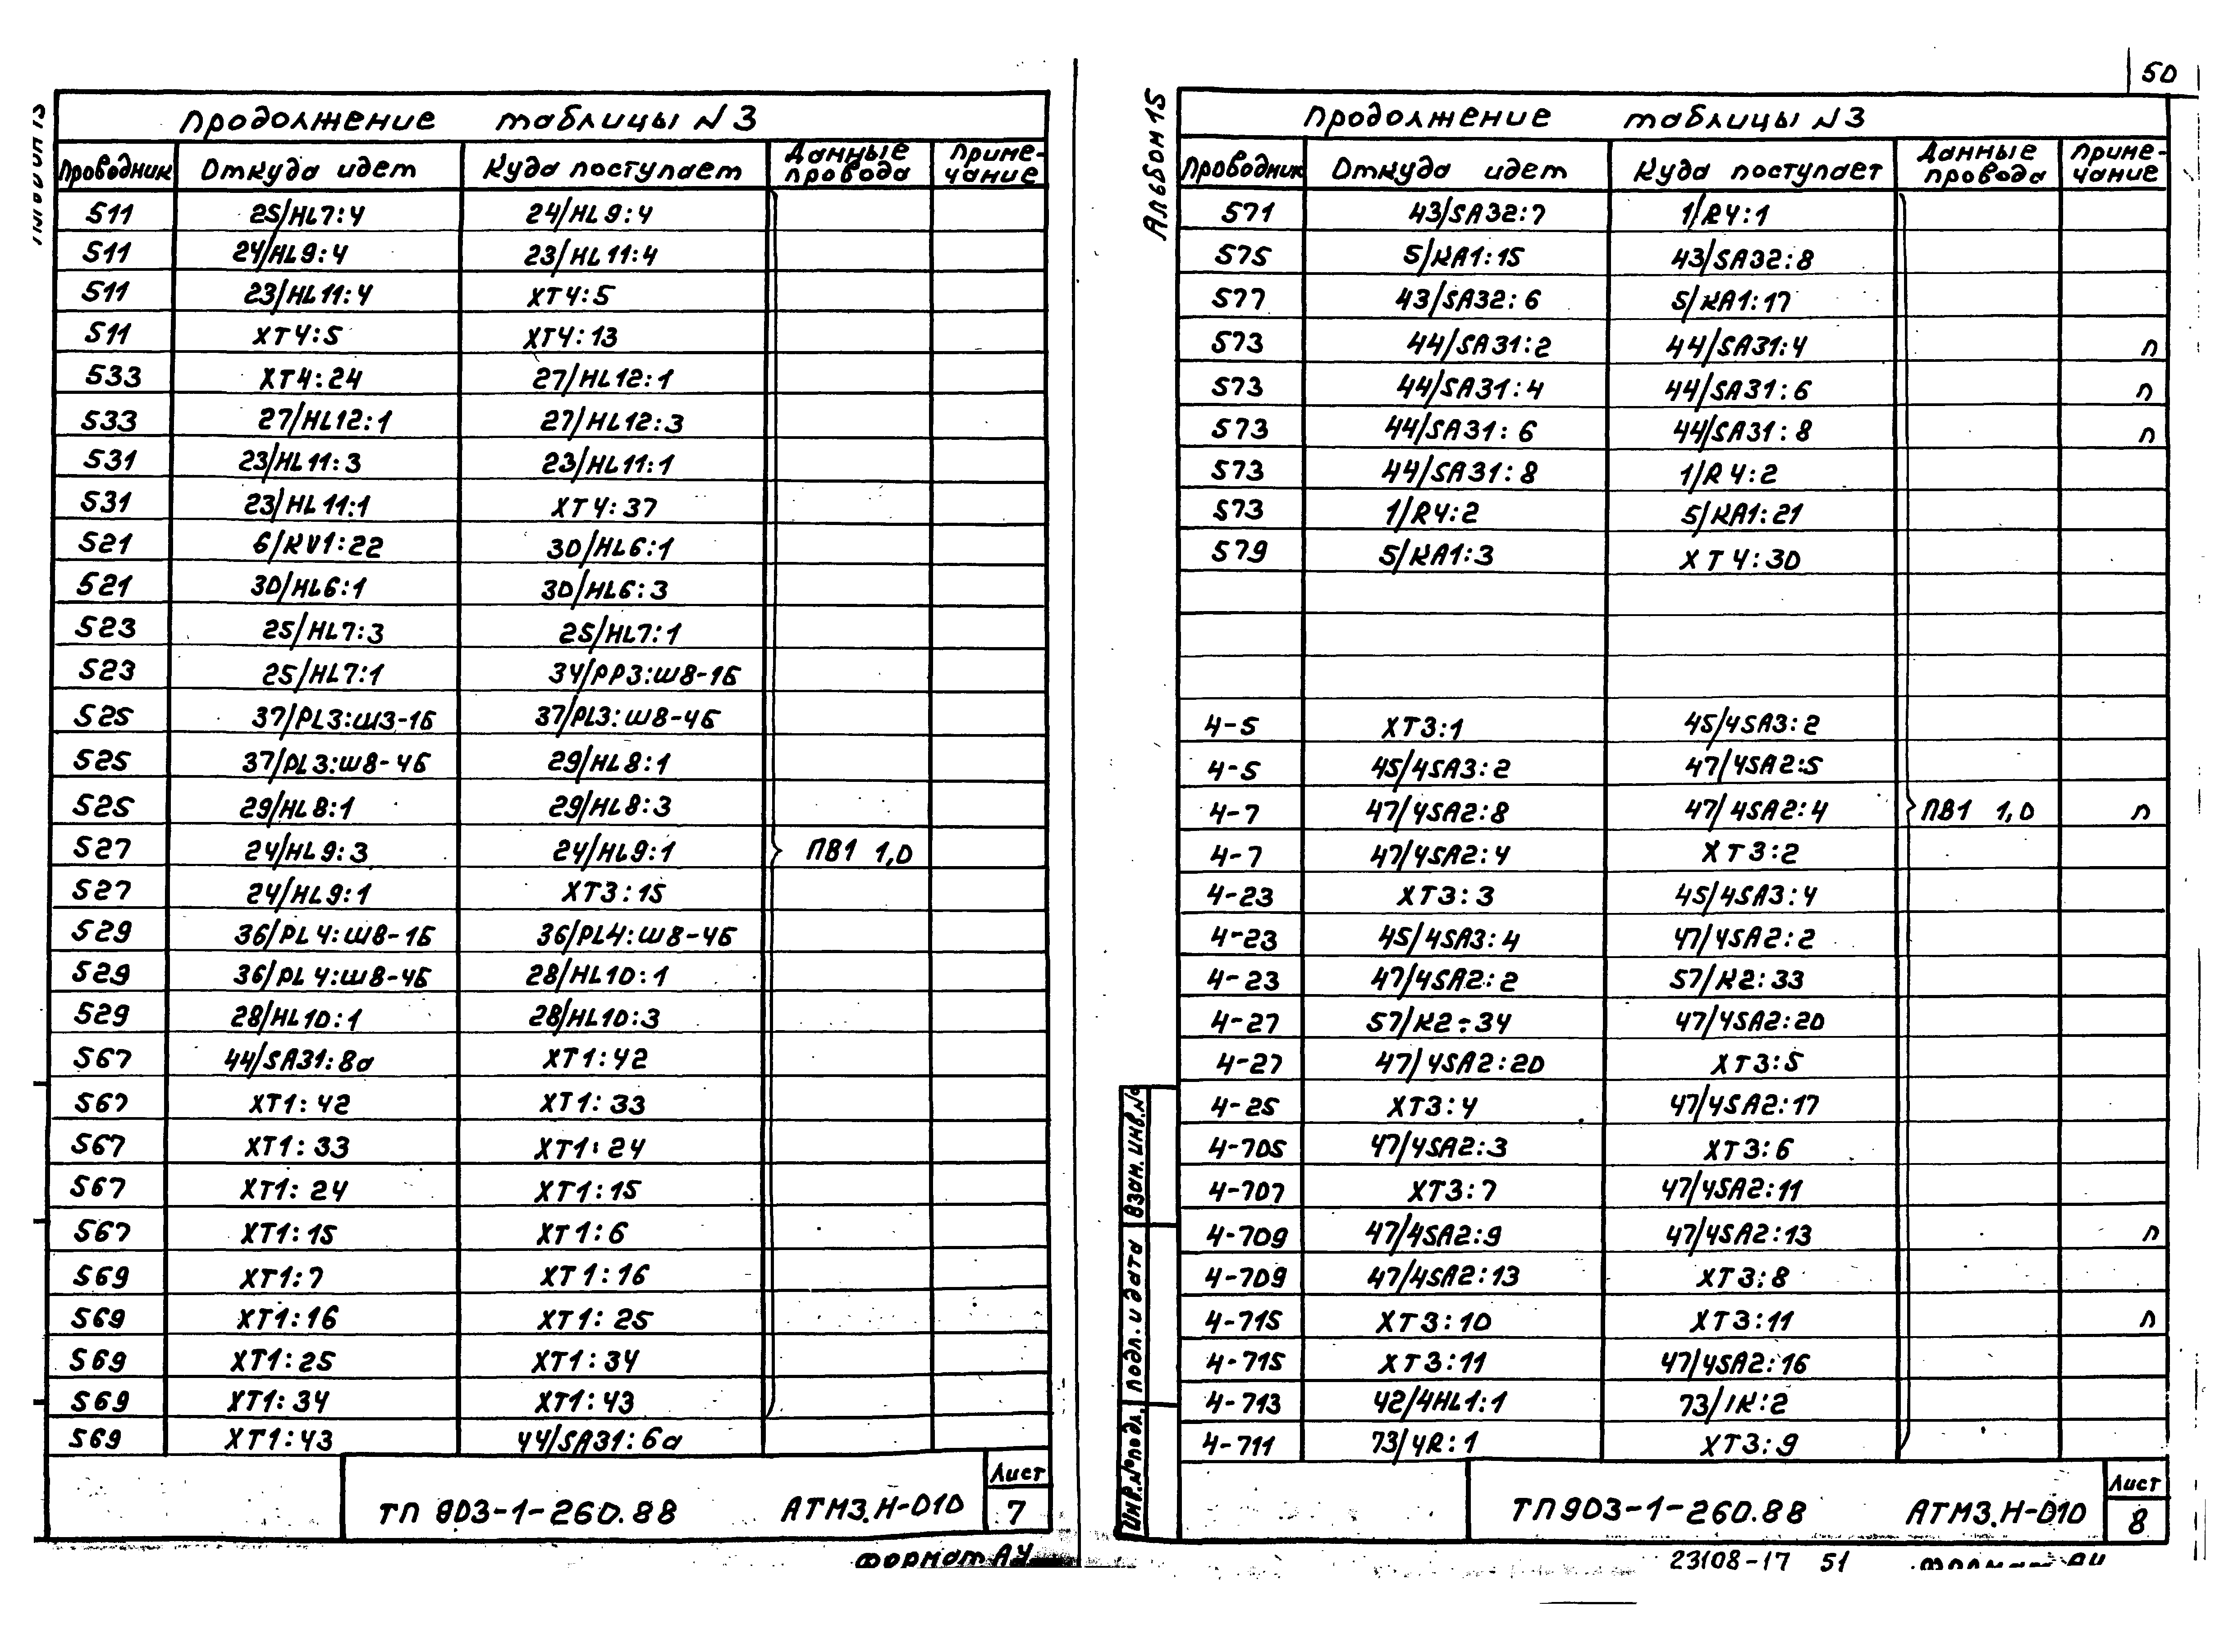 Продолжение таблицы N3
Проводник Откуда идет Куда поступает Данные провода Приме-чание
511 25/HL7:4 24/HL9:4
511 24/HL9:4 23/HL11:4
511 23/HL11:4 XT4:5
511 XT4:5 XT4:13
533 XT4:24 27/HL12:1
533 27/HL12:1 27/HL12:3
531 23/HL11:3 23/HL11:1
531 23/HL11:1 XT4:37
521 6/KV1:22 30/HL6:1
521 30/HL6:1 30/HL6:3
523 25/HL7:3 25/HL7:1
523 25/HL7:1 34/PP3:Ш8-1Б
525 37/PL3:Ш3-1Б 37/PL3:Ш8-4Б
525 37/PL3:Ш8-4Б 29/HL8:1
525 29/HL8:1 29/HL8:3
527 24/HL9:3 24/HL9:1 ПВ1 1,0
527 24/HL9:1 XT3:15
529 36/PL4:Ш8-1Б 36/PL4:Ш8-4Б
529 36/PL4:Ш8-4Б 28/HL10:1
529 28/HL10:1 28/HL10:3
567 44/SA31:8а XT1:42
567 XT1:42 XT1:33
567 XT1:33 XT1:24
567 XT1:24 XT1:15
567 XT1:15 XT1:6
569 XT1:7 XT1:16
569 XT1:16 XT1:25
569 XT1:25 XT1:34
569 XT1:34 XT1:43
569 XT1:43 44/SA31:6а
ТП 903-1-260.88 АТМ3.Н-010 Лист 7
Формат А4
50
Альбом 15
Продолжение таблицы N3
Проводник Откуда идет Куда поступает Данные провода Приме-чание
571 43/SA32:7 1/R4:1
575 5/KA1:15 43/SA32:8
577 43/SA32:6 5/KA1:17
573 44/SA31:2 44/SA31:4 п
573 44/SA31:4 44/SA31:6 п
573 44/SA31:6 44/SA31:8 п
573 44/SA31:8 1/R4:2
573 1/R4:2 5/KA1:21
579 5/KA1:3 XT4:30
4-5 XT3:1 45/4SA3:2
4-5 45/4SA3:2 47/4SA2:5
4-7 47/4SA2:8 47/4SA2:4 ПВ1 1,0 п
4-7 47/4SA2:4 XT3:2
4-23 XT3:3 45/4SA3:4
4-23 45/4SA3:4 47/4SA2:2
4-23 47/4SA2:2 57/K2:33
4-27 57/K2÷34 47/4SA2:20
4-27 47/4SA2:20 XT3:5
4-25 XT3:4 47/4SA2:17
4-705 47/4SA2:3 XT3:6
4-707 XT3:7 47/4SA2:11
4-709 47/4SA2:9 47/4SA2:13 п
4-709 47/4SA2:13 XT3:8
4-715 XT3:10 XT3:11 п
4-715 XT3:11 47/4SA2:16
4-713 42/4HL1:1 73/1K:2
4-711 73/4R:1 XT3:9
Взам.инв.№
Подп. и дата
Инв.№подл.
ТП 903-1-260.88 АТМ3.Н-010 Лист 8
23108-17 51